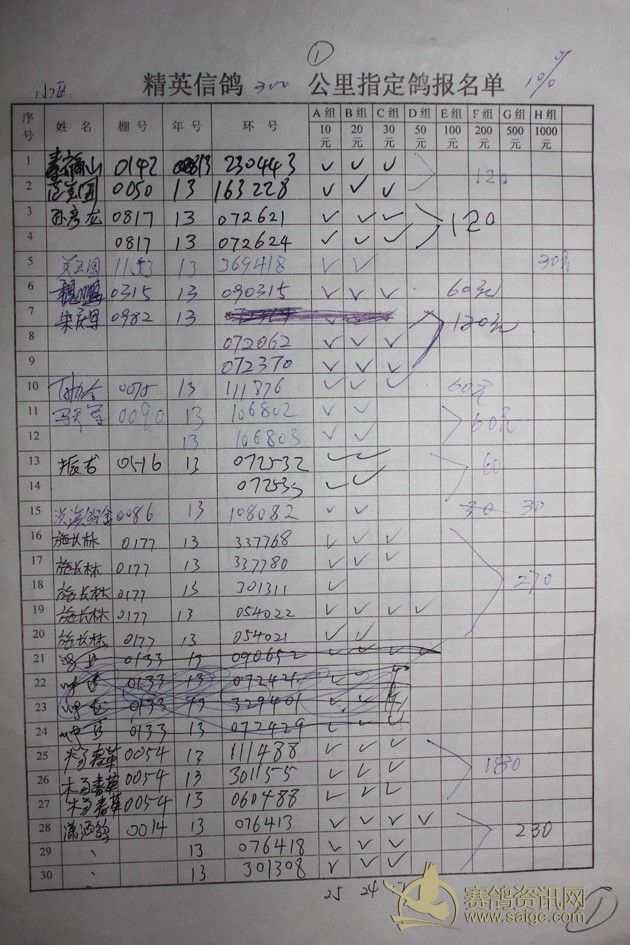 ①
小区 精英信鸽 300 公里指定鸽报名单 10%
序号 姓 名 棚 号 年 号 环 号 A 组 10 元 B 组 20 元 C 组 30 元 D 组 50 元 E 组 100 元 F 组 200 元 G 组 500 元 H 组 1000 元
1 0142 13 230443 ✓ ✓ ✓
2 0050 13 163228 ✓ ✓ ✓ 120
3 孙彦龙 0817 13 072621 ✓ ✓ ✓
4 0817 13 072624 ✓ ✓ ✓ 120
5 1153 13 369418 ✓ ✓ 30元
6 魏鹏 0315 13 090315 ✓ ✓ ✓ 60元
7 宋庆军 0982 13
8 072062 ✓ ✓ ✓ 120元
9 072370 ✓ ✓ ✓
10 0075 13 111876 ✓ ✓ ✓ 60元
11 0090 13 106802 ✓ ✓
12 13 106803 ✓ ✓ 60元
13 0516 13 072532 ✓ ✓
14 072533 ✓ ✓ 60
15 0086 13 108082 ✓ ✓ 30 30
16 施长林 0177 13 337768 ✓ ✓ ✓
17 施长林 0177 13 337780 ✓ ✓ ✓
18 施长林 0177 13 301311 ✓ 270
19 施长林 0177 13 054022 ✓ ✓ ✓ ✓
20 施长林 0177 13 054021 ✓ ✓
21 0133 13 090652 ✓ ✓ ✓
22 0133 13 072421 ✓ ✓
23 0133 13 329401 ✓ ✓
24 0133 13 072429 ✓ ✓ ✓
25 0054 13 111488 ✓ ✓ ✓
26 0054 13 301155 ✓ ✓ ✓ 180
27 0054 13 060488 ✓ ✓ ✓
28 潇洒鸽 0014 13 076413 ✓ ✓ ✓ ✓ 230
29 13 076418 ✓ ✓ ✓
30 13 301308 ✓ ✓ ✓
25 24
赛鸽资讯网
www.saige.com
①